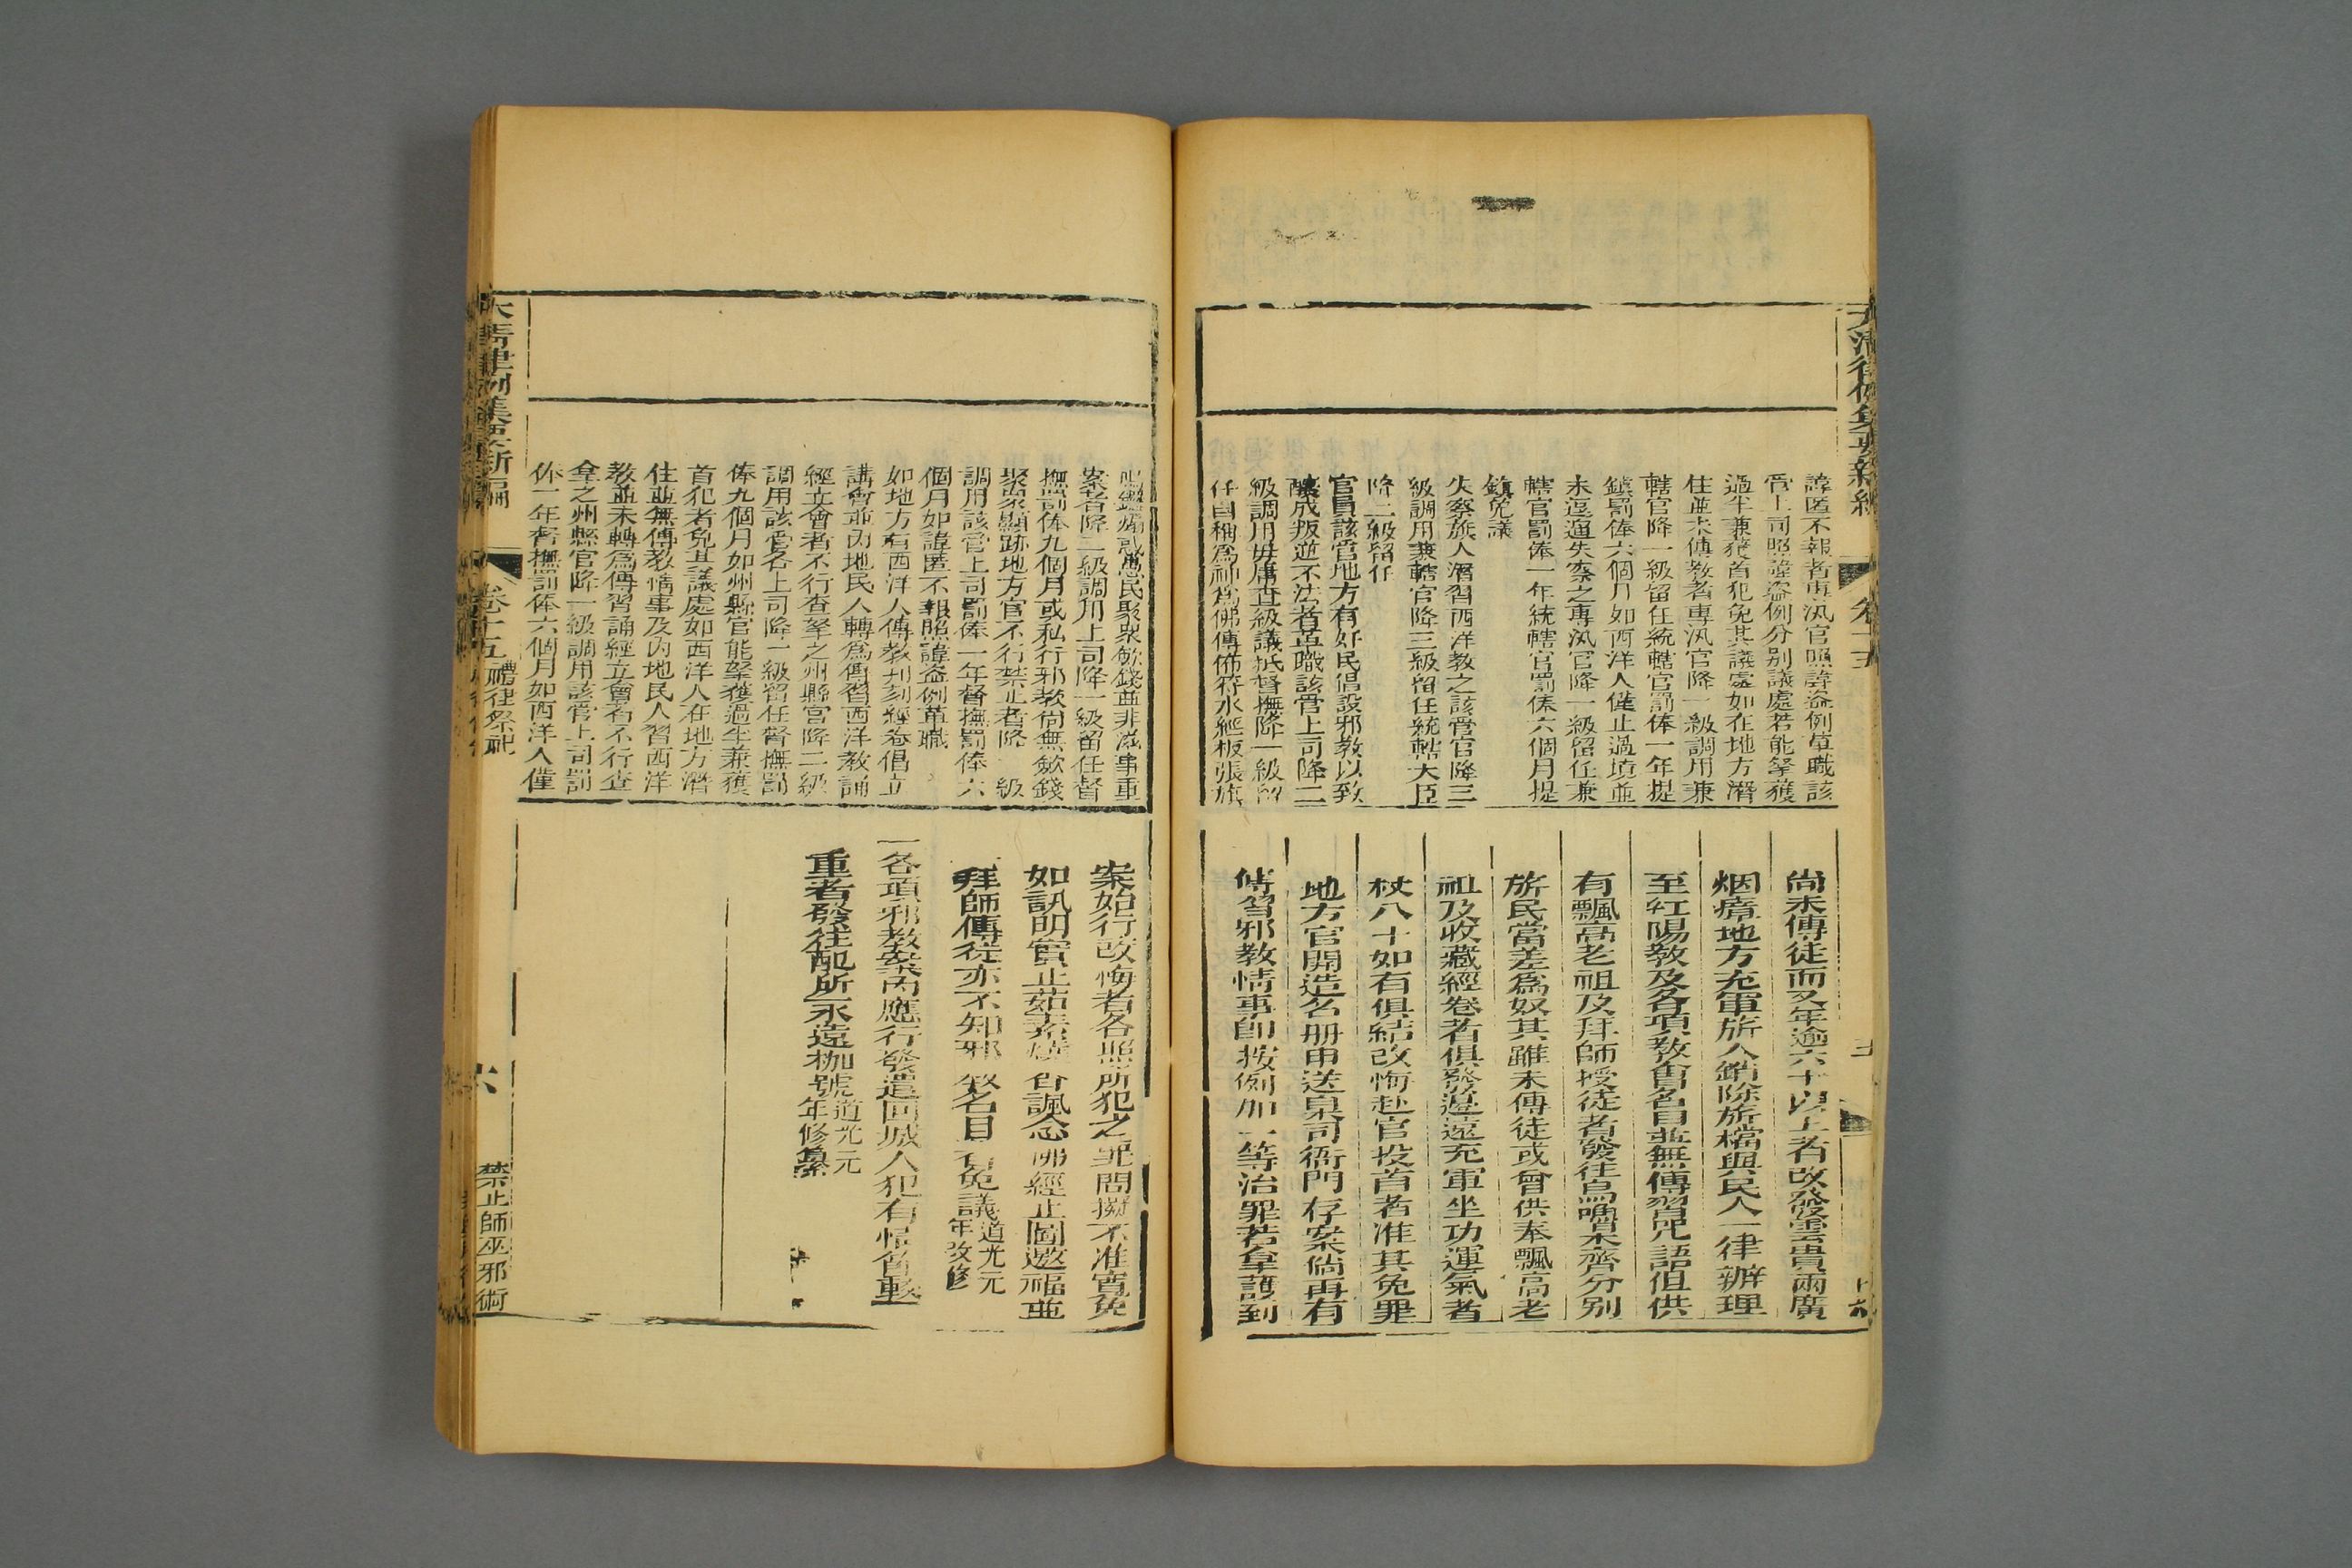 大清律例集要新編
卷十五
諱匿不報者專汛官照諱盜例革職該
管上司照諱盜例分別議處若能拏獲
過半兼獲首犯免其議處如在地方潛
住並未傳教者專汛官降一級調用兼
轄官降一級留任統轄官罰俸一年提
鎮罰俸六個月如西洋人僅止過境並
未逗遛失察之專汛官降一級留任兼
轄官罰俸一年統轄官罰俸六個月提
鎮免議
失察旗人潛習西洋教之該管官降三
級調用兼轄官降三級留任統轄大臣
降二級留任
官員該管地方有奸民倡設邪教以致
釀成叛逆不法者革職該管上司降二
級調用毋庸查級議抵督撫降一級留
任自稱為神為佛傳佈符水經板張旗
尚未傳徒而又年逾六十以上者改發雲貴兩廣
烟瘴地方充軍旂人銷除旂檔與民人一律辦理
至紅陽教及各項教會名目並無傳習咒語但供
有飄高老祖及拜師授徒者發往烏嚕木齊分別
旂民當差為奴其雖未傳徒或曾供奉飄高老
祖及收藏經卷者俱發邊遠充軍坐功運氣者
杖八十如有俱結改悔赴官投首者准其免罪
地方官開造名册申送臬司衙門存案倘再有
傳習邪教情事即按例加一等治罪若拿護到
鳴鑼煽惑愚民聚眾歛錢並非滋事重
案者降二級調用上司降一級留任督
撫罰俸九個月或私行邪教尚無歛錢
聚眾顯跡地方官不行禁止者降一級
調用該管上司罰俸一年督撫罰俸六
個月如諱匿不報照諱盜例革職
如地方有西洋人傳教刊刻經卷倡立
講會並內地民人轉為傳習西洋教誦
經立會者不行查拏之州縣官降二級
調用該管各上司降一級留任督撫罰
俸九個月如州縣官能拏獲過半兼獲
首犯者免其議處如西洋人在地方潛
住並無傳教情事及內地民人習西洋
教並未轉為傳習誦經立會者不行查
拿之州縣官降一級調用該管上司罰
俸一年督撫罰俸六個月如西洋人僅
案始行改悔者各照所犯之罪問擬不准寬免
如訊明實止茹素燒香諷念佛經止圖邀福並
拜師傳徒亦不知邪教名目者免議道光元年改修
一各項邪教案內應行發遣回城人犯有情節較
重者發往配所永遠枷號道光元年修纂
大清律例集要新編
卷十五 禮律祭祀
六
禁止師巫邪術